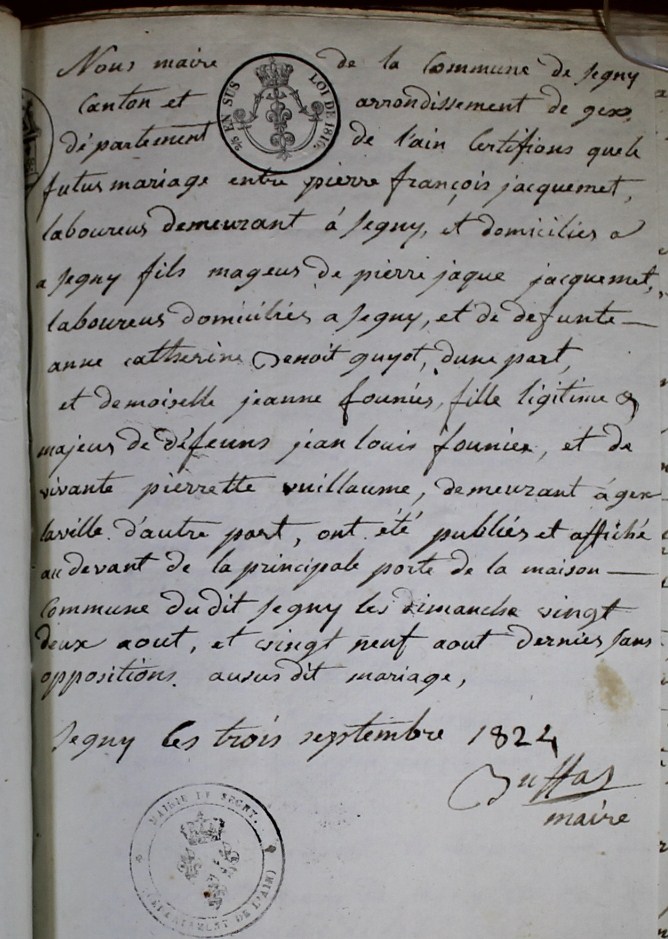 Nous maire de la Commune de Segny
25 EN SUS LOI DE 1816
Canton et arrondissement de gex,
département de l'ain Certifions que le
futur mariage entre pierre françois jacquemet,
laboureur demeurant á Segny, et domicilier a
a Segny fils mageur de pierre jaque jacquemet,
laboureur domiciliér a Segny, et de defunte
anne catherine Benoit guyot, d'une part,
et demoiselle jeanne founier, fille ligitime &
majeur de défeuns jean louis founier, et de
vivante pierrette vuillaume, demeurant á gex
laville d'autre part, ont été publiér et affiché
au devant de la principale porte de la maison
Commune du dit Segny les dimanche vingt
deux aout, et vingt neuf aout dernier sans
oppositions au sus dit mariage,
Segny les trois septembre 1824
maire
MAIRIE DE SEGNY.
(DÉPARTEMENT DE L'AIN)